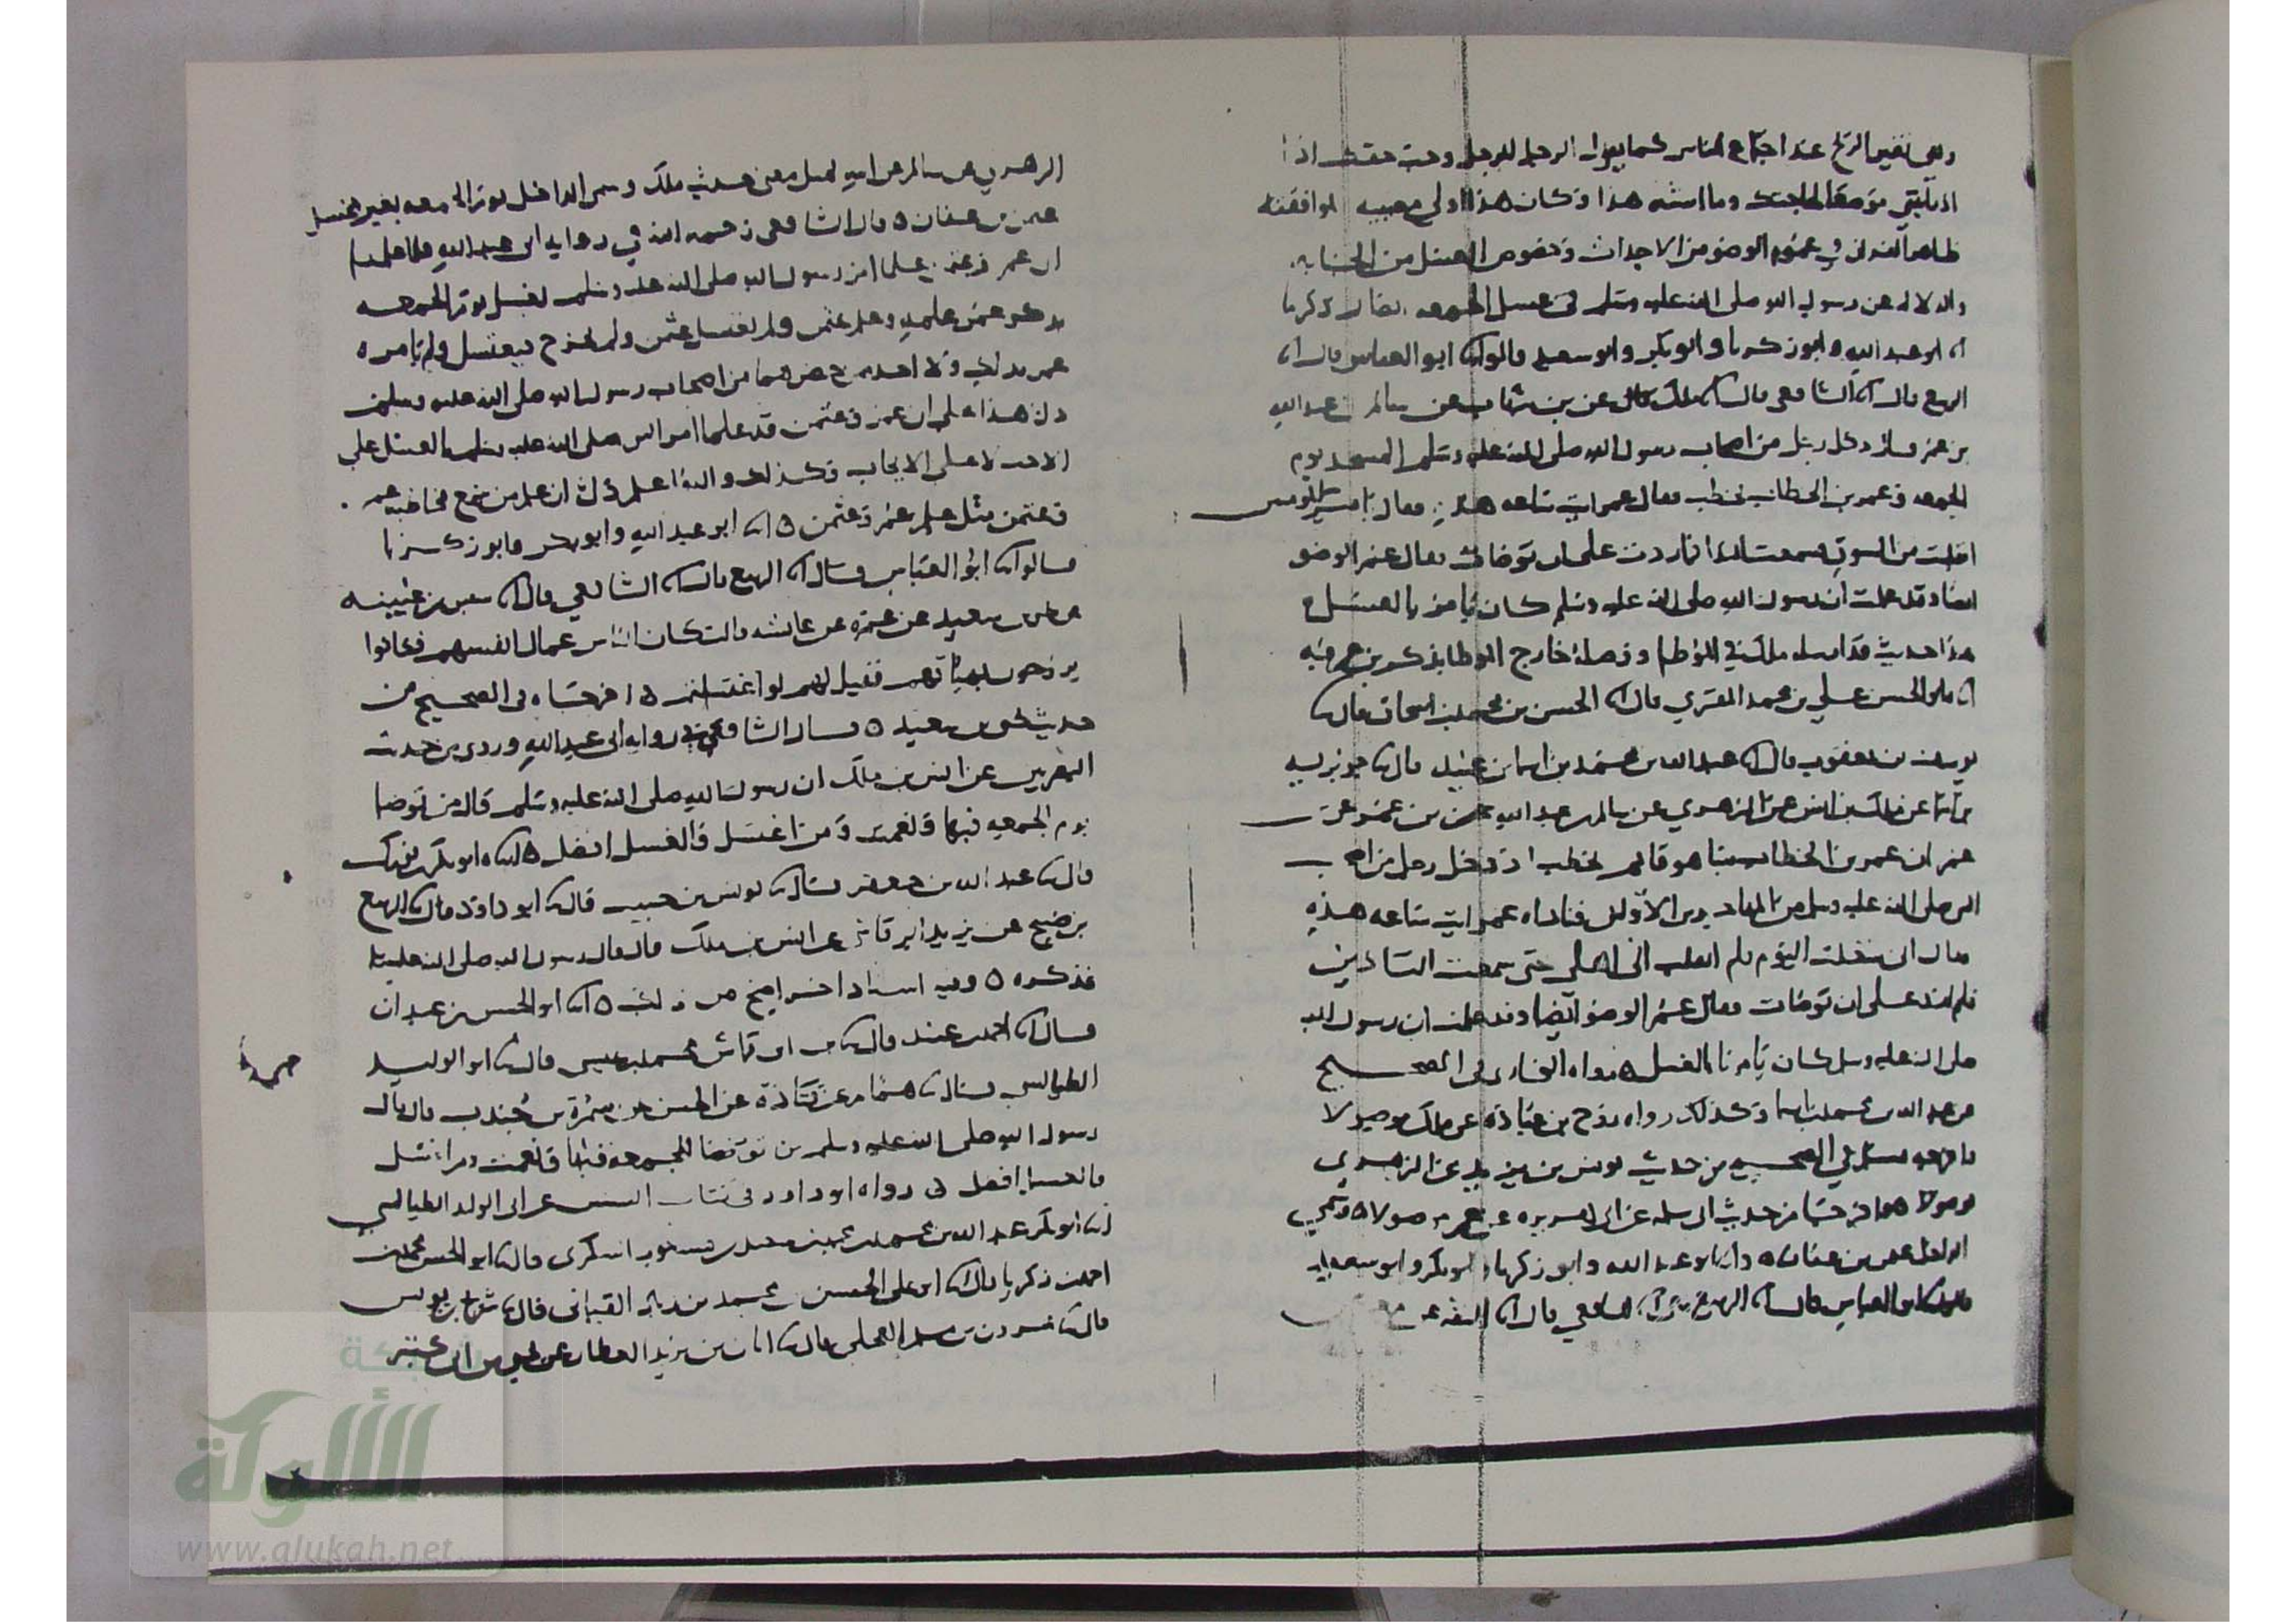 وهي تغير الريح عند اجتماع الناس كما يقول الرجل للرجل وجب حقك اذا
ظاهر القران في عموم الوضو من الاحداث وخصوص الغسل من الجنابه
والدلاله عن رسول الله صلى الله عليه وسلم في غسل الجمعه ايضا
ابو عبد الله وابو زكريا وابو بكر وابو سعيد قالوا ابو العباس قال
الربيع قال الشافعي قال ملك عن بن شهاب عن سالم بن عبد الله
بن عمر قال دخل رجل من اصحاب رسول الله صلى الله عليه وسلم المسجد يوم
الجمعه وعمر بن الخطاب يخطب فقال عمر ايت ساعه هذه فقال يا امير المومنين
انقلبت من السوق فسمعت الندا فما زدت على ان توضات فقال عمر الوضو
ايضا وقد علمت ان رسول الله صلى الله عليه وسلم كان يامر بالغسل
هذا حديث قد ارسله ملك في الموطا ووصله خارج الموطا بذكر بن عمر فيه
ابو الحسن علي بن محمد المقري قال الحسن بن محمد بن اسحاق قال
يوسف بن يعقوب قال عبد الله بن محمد بن اسما بن عبيد قال جويريه
بن اسما عن ملك بن انس عن الزهري عن سالم بن عبد الله بن عمر عن بن
عمر ان عمر بن الخطاب بينا هو قايم يخطب اذ دخل رجل من اصحاب
النبي صلى الله عليه وسلم من المهاجرين الاولين فناداه عمر ايت ساعه هذه
فقال اني شغلت اليوم فلم انقلب الى اهلي حتى سمعت التاذين
فلم ازد على ان توضات فقال عمر الوضو ايضا وقد علمت ان رسول الله
صلى الله عليه وسلم كان يامرنا بالغسل ه رواه البخاري في الصحيح
عن عبد الله بن محمد بن اسما وكذلك رواه روح بن عباده عن ملك موصولا
واخرجه مسلم في الصحيح من حديث يونس بن يزيد عن الزهري
موصولا واخرجاه من حديث ابي سلمه عن ابي هريره عن عمر موصولا وسمي
الداخل عثمن بن عفان ه وابو عبد الله وابو زكريا وابو بكر وابو سعيد
قالوا ابو العباس قال الربيع قال الشافعي قال الثقه عن معمر عن
الزهري عن سالم عن ابيه بمثل معنى حديث ملك وسمى الداخل يوم الجمعه بغير غسل
عثمن بن عفان ه قال الشافعي رحمه الله في روايه ابي عبد الله فلما علمنا
ان عمر وعثمن علما امر رسول الله صلى الله عليه وسلم بغسل يوم الجمعه
بذكر عمر علمه وعلم عثمن ولم يغتسل عثمن ولم يخرج فيغتسل ولم يامره
عمر بذلك ولا احد ممن حضرهما من اصحاب رسول الله صلى الله عليه وسلم
دل هذا على ان عمر وعثمن قد علما امر النبي صلى الله عليه وسلم بالغسل على
الاحب لا على الايجاب وكذلك والله اعلم دل ان علم من سمع مخاطبه عمر
وعثمن مثل علم عمر وعثمن ه ابو عبد الله وابو بكر وابو زكريا
قالوا ابو العباس قال الربيع قال الشافعي قال سفين بن عيينه
عن يحيى بن سعيد عن عمره عن عايشه قالت كان الناس عمال انفسهم فكانوا
يروحون بهياتهم فقيل لهم لو اغتسلتم ه اخرجاه في الصحيح من
حديث يحيى بن سعيد ه قال الشافعي في روايه ابي عبد الله وروى من حديث
البصريين عن انس بن ملك ان رسول الله صلى الله عليه وسلم قال من توضا
يوم الجمعه فبها ونعمت ومن اغتسل فالغسل افضل ه ابو بكر بن فورك
قال عبد الله بن جعفر قال يونس بن حبيب قال ابو داود قال الربيع
بن صبيح عن يزيد الرقاشي عن انس بن ملك قال قال رسول الله صلى الله عليه وسلم
فذكره ه وفيه اسناد اخر اصح من ذلك ه ابو الحسن بن عبدان
قال احمد بن عبيد قال محمد بن عيسى قال ابو الوليد
الطيالسي قال همام عن قتادة عن الحسن عن سمرة بن جندب قال قال
رسول الله صلى الله عليه وسلم من توضا للجمعه فبها ونعمت ومن اغتسل
فالغسل افضل ه رواه ابو داود في كتاب السنن عن ابي الوليد الطيالسي
ابو بكر عبد الله بن محمد بن محمد بن سعيد السكري قال ابو الحسن محمد بن
احمد بن زكريا قال ابو علي الحسين بن محمد بن زياد القباني قال شريح بن يونس
قال هرون بن مسلم العجلي قال ابان بن يزيد العطار عن يحيى بن ابي كثير
شبكة
الألوكة
www.alukah.net